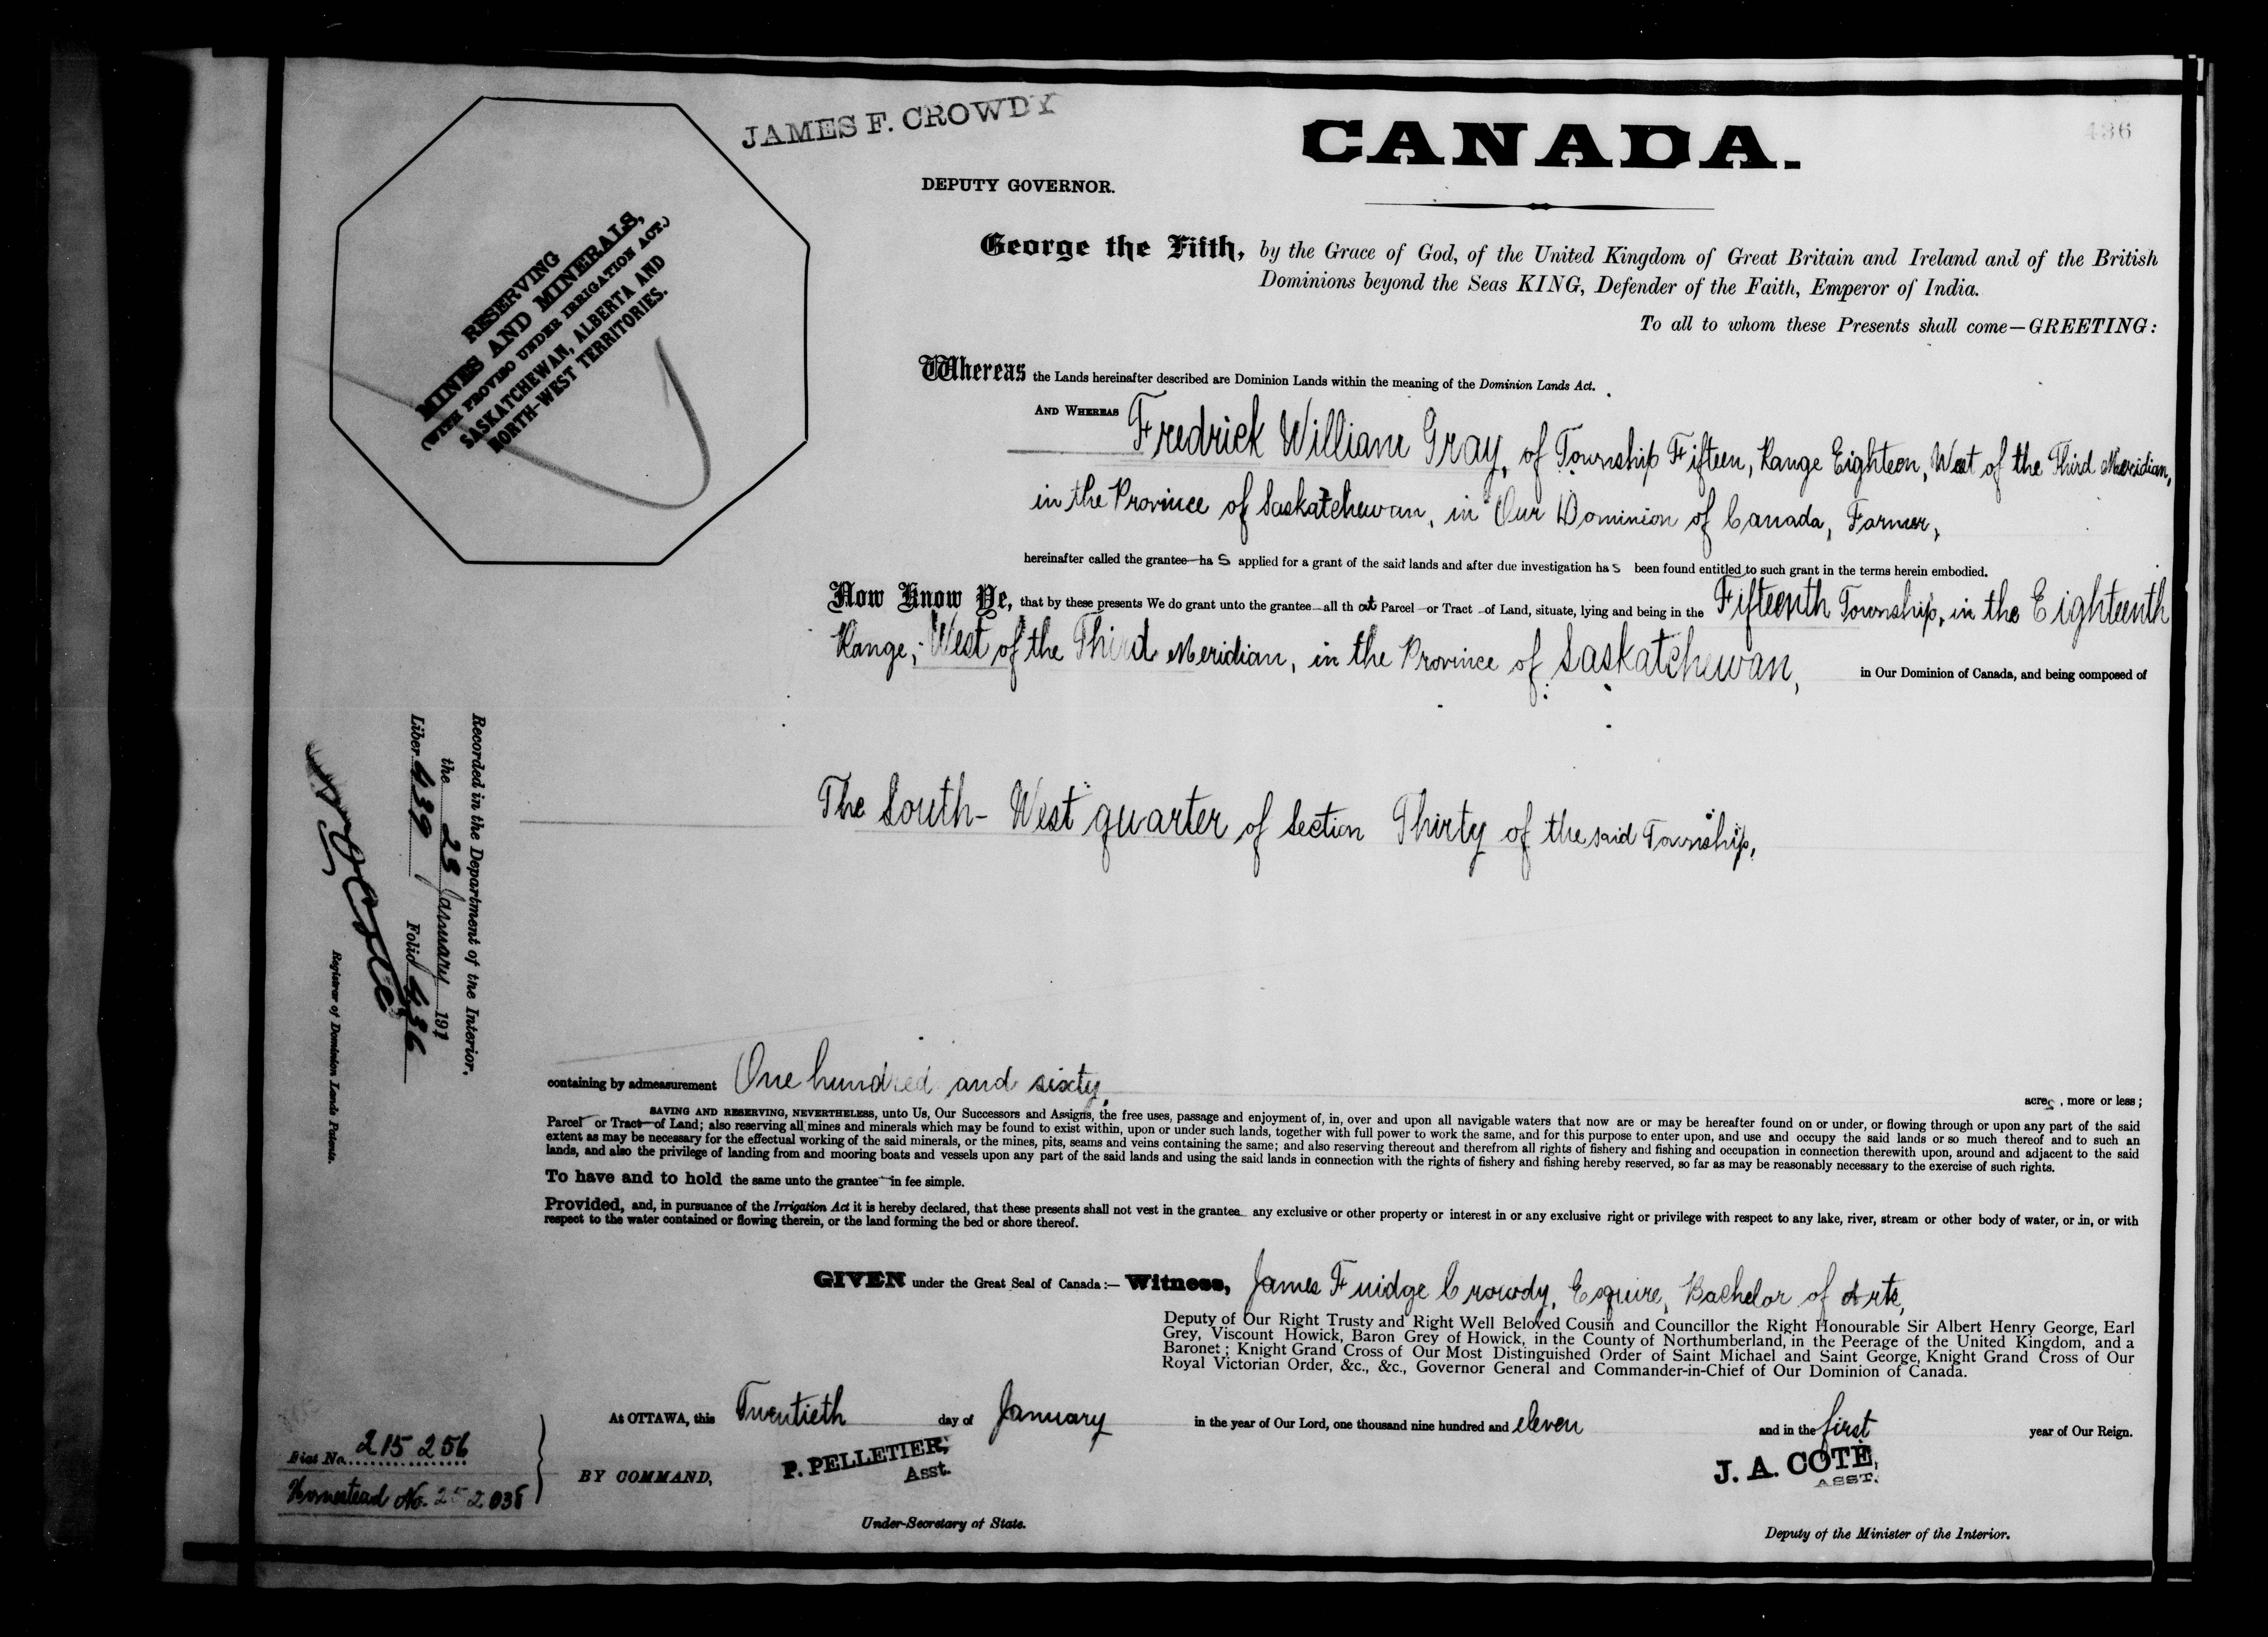 JAMES F. CROWDY
CANADA.
436
DEPUTY GOVERNOR.
RESERVING
MINES AND MINERALS,
(WITH PROVISO UNDER IRRIGATION ACT.)
SASKATCHEWAN, ALBERTA AND
NORTH-WEST TERRITORIES.
George the Fifth, by the Grace of God, of the United Kingdom of Great Britain and Ireland and of the British
Dominions beyond the Seas KING, Defender of the Faith, Emperor of India.
To all to whom these Presents shall come—GREETING:
Whereas the Lands hereinafter described are Dominion Lands within the meaning of the Dominion Lands Act.
AND WHEREAS Fredrick William Gray, of Township Fifteen, Range Eighteen, West of the Third Meridian,
in the Province of Saskatchewan, in Our Dominion of Canada, Farmer,
hereinafter called the grantee ha s applied for a grant of the said lands and after due investigation has been found entitled to such grant in the terms herein embodied.
Now Know Ye, that by these presents We do grant unto the grantee all th at Parcel or Tract of Land, situate, lying and being in the Fifteenth Township, in the Eighteenth
Range, West of the Third Meridian, in the Province of Saskatchewan, in Our Dominion of Canada, and being composed of
The South-West quarter of Section Thirty of the said Township,
Recorded in the Department of the Interior,
the 28 January 1911
Liber 439 Folio 436
Registrar of Dominion Lands Patents.
containing by admeasurement One hundred and sixty, acres, more or less;
SAVING AND RESERVING, NEVERTHELESS, unto Us, Our Successors and Assigns, the free uses, passage and enjoyment of, in, over and upon all navigable waters that now are or may be hereafter found on or under, or flowing through or upon any part of the said
Parcel or Tract of Land; also reserving all mines and minerals which may be found to exist within, upon or under such lands, together with full power to work the same, and for this purpose to enter upon, and use and occupy the said lands or so much thereof and to such an
extent as may be necessary for the effectual working of the said minerals, or the mines, pits, seams and veins containing the same; and also reserving thereout and therefrom all rights of fishery and fishing and occupation in connection therewith upon, around and adjacent to the said
lands, and also the privilege of landing from and mooring boats and vessels upon any part of the said lands and using the said lands in connection with the rights of fishery and fishing hereby reserved, so far as may be reasonably necessary to the exercise of such rights.
To have and to hold the same unto the grantee in fee simple.
Provided, and, in pursuance of the Irrigation Act it is hereby declared, that these presents shall not vest in the grantee any exclusive or other property or interest in or any exclusive right or privilege with respect to any lake, river, stream or other body of water, or in, or with
respect to the water contained or flowing therein, or the land forming the bed or shore thereof.
GIVEN under the Great Seal of Canada:— Witness, James Fuidge Crowdy, Esquire, Bachelor of Arts,
Deputy of Our Right Trusty and Right Well Beloved Cousin and Councillor the Right Honourable Sir Albert Henry George, Earl
Grey, Viscount Howick, Baron Grey of Howick, in the County of Northumberland, in the Peerage of the United Kingdom, and a
Baronet; Knight Grand Cross of Our Most Distinguished Order of Saint Michael and Saint George, Knight Grand Cross of Our
Royal Victorian Order, &c., &c., Governor General and Commander-in-Chief of Our Dominion of Canada.
At OTTAWA, this Twentieth day of January in the year of Our Lord, one thousand nine hundred and eleven and in the first year of Our Reign.
Fiat No. 215256
Homestead No. 252038
BY COMMAND,
P. PELLETIER,
Asst.
J. A. COTÉ,
ASST.
Under-Secretary of State.
Deputy of the Minister of the Interior.